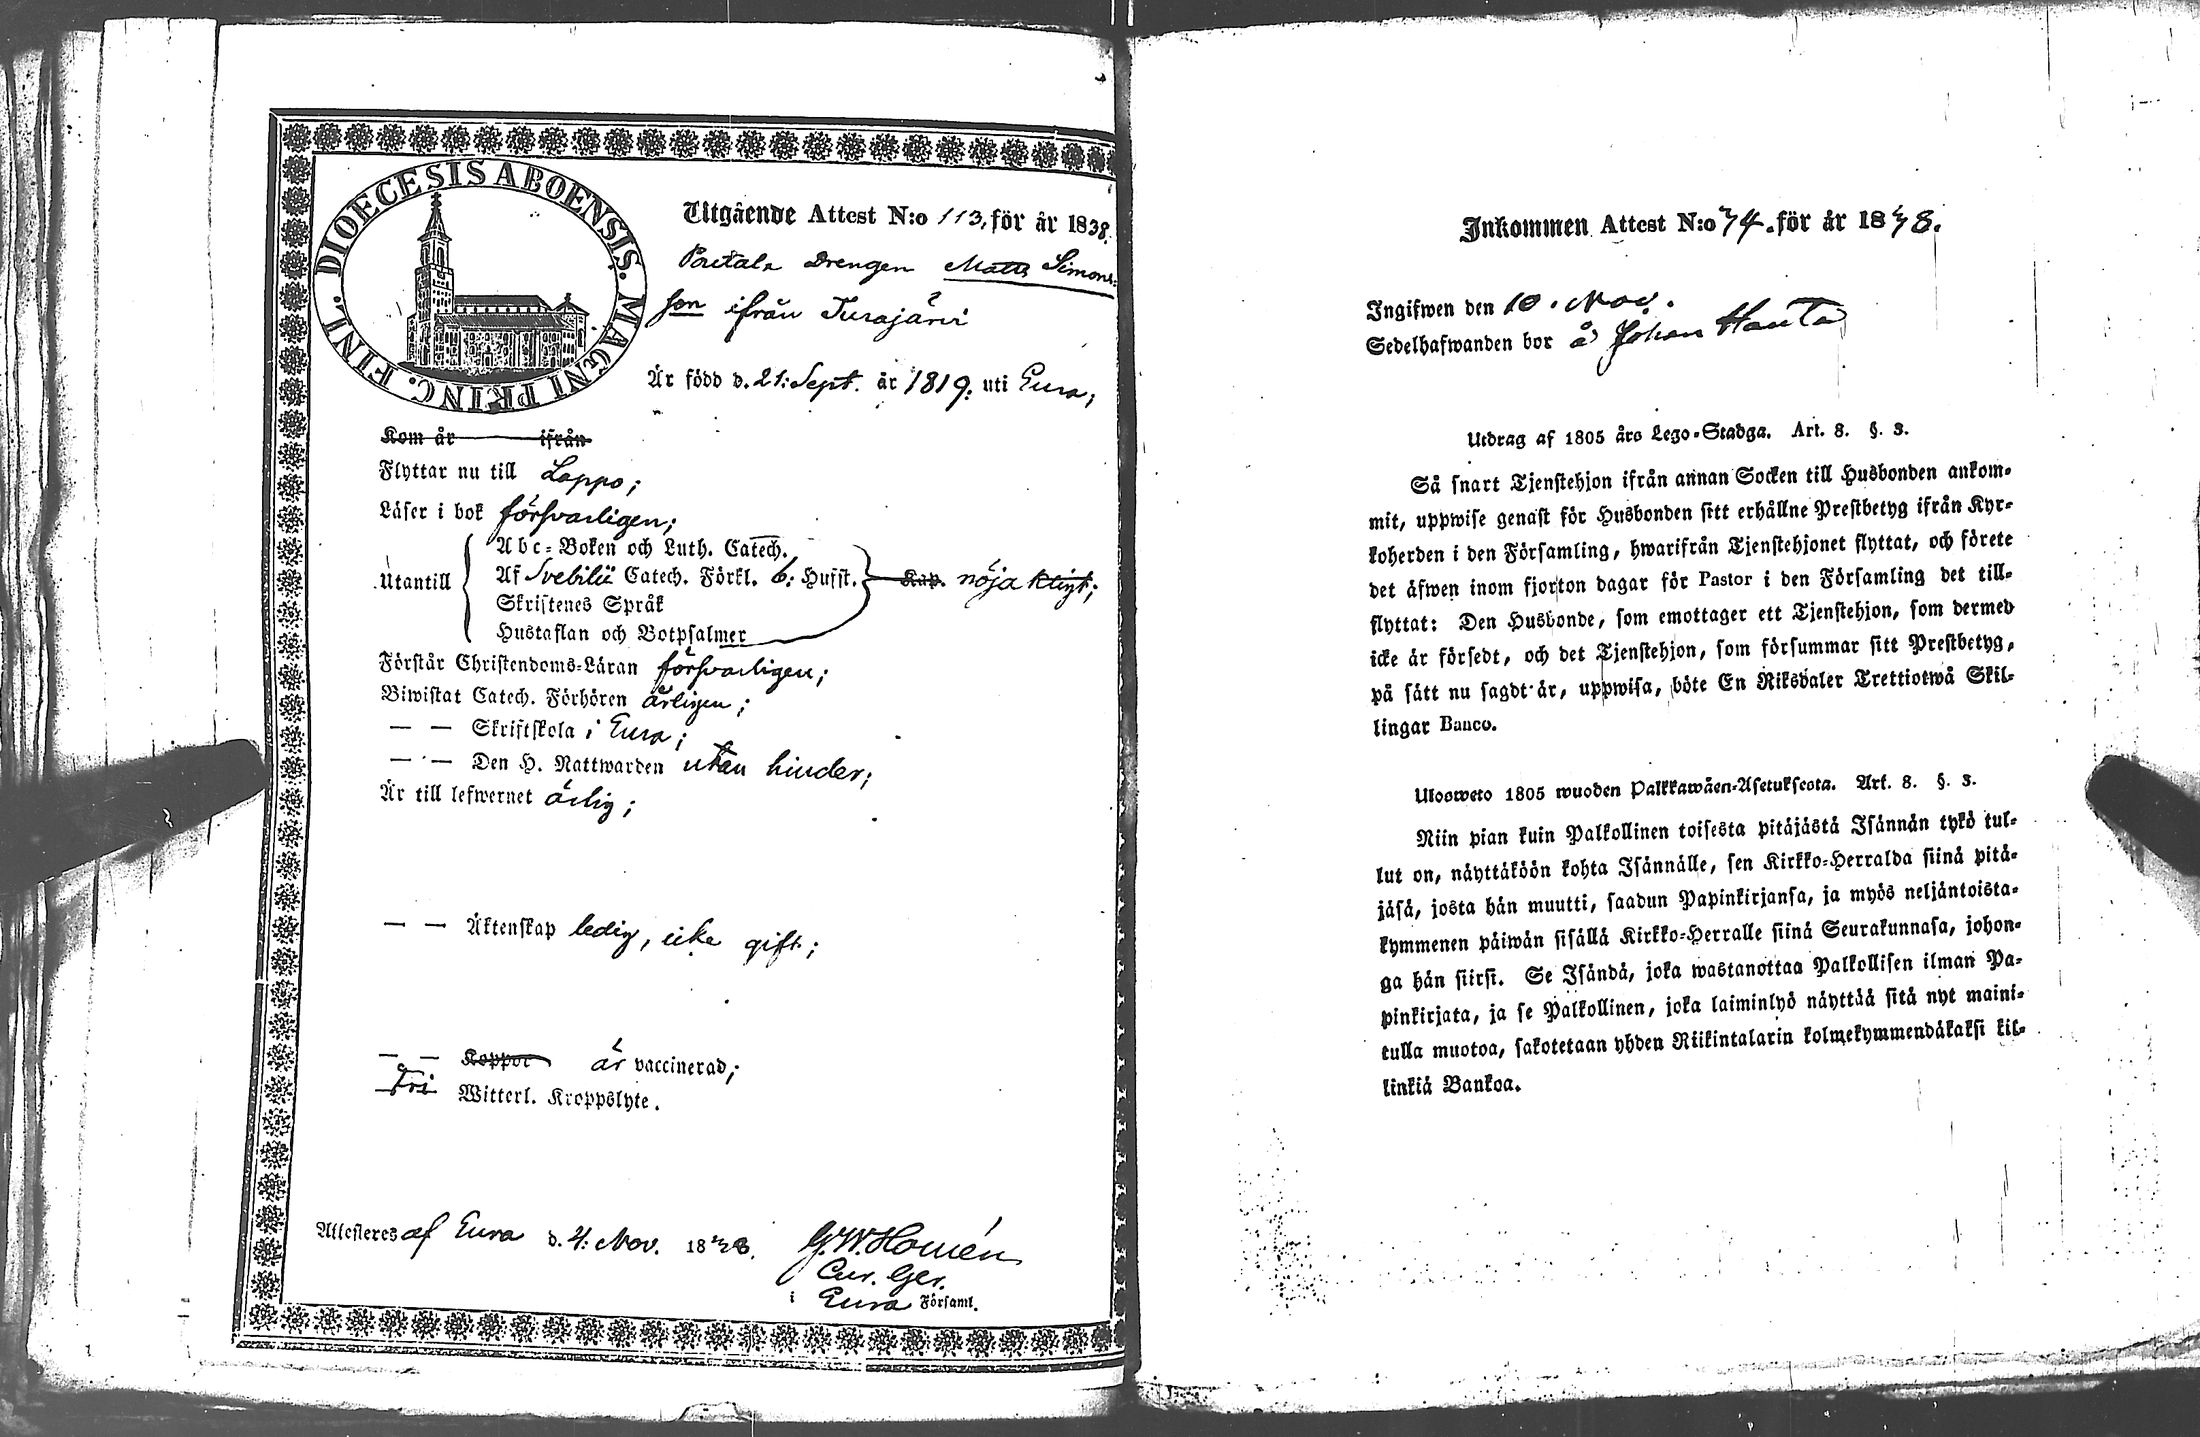 DIOECESIS ABOENSIS. MAGNI PRINC. FINL.
Utgående Attest N:o 113, för år 1838.
Drengen Matts Simons-
son ifrån Turajärvi
Är född d. 21: Sept. år 1819: uti Eura;
Kom år ifrån
Flyttar nu till Lappo;
Läser i bok försvarligen;
Utantill
Abc-Boken och Luth. Catech.
Af Svebilii Catech. Förkl. 6: Hufst. Kap. nöjaktigt;
Skriftenes Språk
Hustaflan och Botpsalmer
Förstår Christendoms-Läran försvarligen;
Biwistat Catech. Förhören årligen;
— — Skriftskola i Eura;
— — Den H. Nattwarden utan hinder;
Är till lefwernet ärlig;
— — Äktenskap ledig, icke gift;
— — Koppor är vaccinerad;
Fri Witterl. Kroppslyte.
Attesteres af Eura d. 4: Nov. 1838.
G. W. Homén
Cur. Ger.
i Eura Församl.
Inkommen Attest N:o 74. för år 1838.
Ingifwen den 10. Nov.
Sedelhafwanden bor å Johan Hauta
Utdrag af 1805 års Lego-Stadga. Art. 8. §. 3.
Så snart Tjenstehjon ifrån annan Socken till Husbonden ankom-
mit, uppwise genast för Husbonden sitt erhållne Prestbetyg ifrån Kyr-
koherden i den Församling, hwarifrån Tjenstehjonet flyttat, och förete
det äfwen inom fjorton dagar för Pastor i den Församling det till-
flyttat: Den Husbonde, som emottager ett Tjenstehjon, som dermed
icke är försedt, och det Tjenstehjon, som försummar sitt Prestbetyg,
på sätt nu sagdt är, uppwisa, böte En Riksdaler Trettiotwå Skil-
lingar Banco.
Ulosweto 1805 wuoden Palkkawäen-Asetuksesta. Art. 8. §. 3.
Niin pian kuin Palkollinen toisesta pitäjästä Isännän tykö tul-
lut on, näyttäköön kohta Isännälle, sen Kirkko-Herralda siinä pitä-
jäsä, josta hän muutti, saadun Papinkirjansa, ja myös neljäntoista-
kymmenen päiwän sisällä Kirkko-Herralle siinä Seurakunnasa, johon-
ga hän siirsi. Se Isändä, joka wastanottaa Palkollisen ilman Pa-
pinkirjata, ja se Palkollinen, joka laiminlyö näyttää sitä nyt maini-
tulla muotoa, sakotetaan yhden Riikintalarin kolmekymmendäkaksi kil-
linkiä Bankoa.